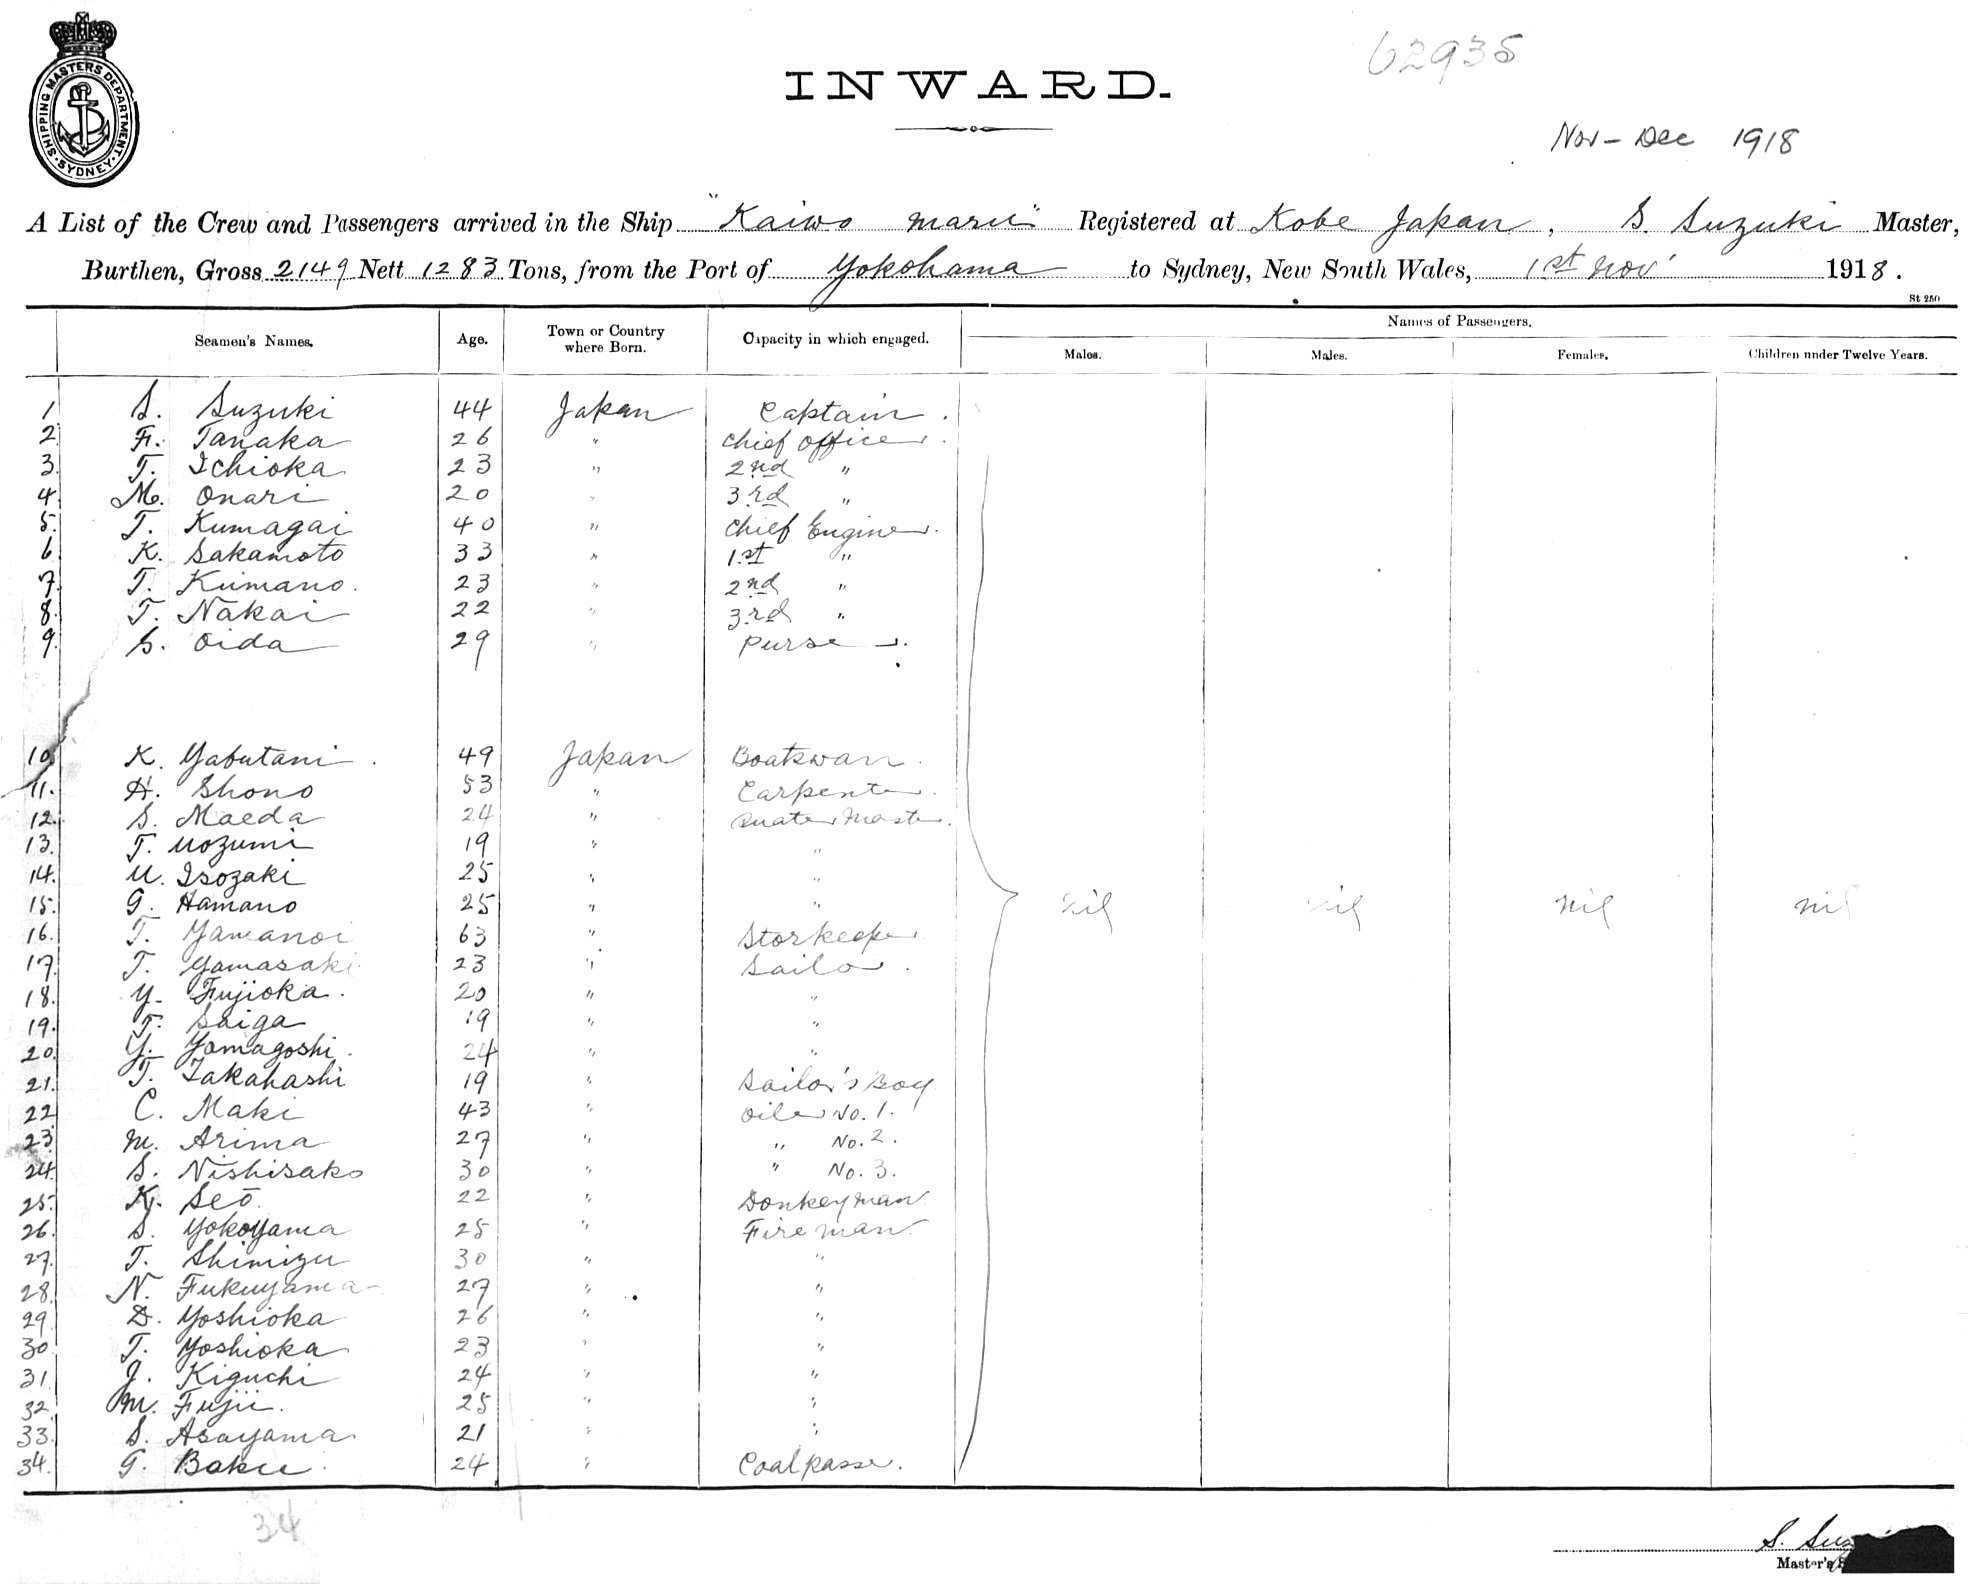 SHIPPING MASTERS DEPARTMENT · SYDNEY ·
62935
INWARD.
Nov - Dec 1918
A List of the Crew and Passengers arrived in the Ship "Kaiwo Maru" Registered at Kobe Japan, S. Suzuki Master,
Burthen, Gross 2149 Nett 1283 Tons, from the Port of Yokohama to Sydney, New South Wales, 1st Nov 1918.
St 250
Seamen's Names. Age. Town or Country where Born. Capacity in which engaged. Names of Passengers.
Males. Males. Females. Children under Twelve Years.
1 S. Suzuki 44 Japan Captain.
2 F. Tanaka 26 " Chief Officer.
3. T. Ichioka 23 " 2nd "
4. M. Onari 20 " 3rd "
5. T. Kumagai 40 " Chief Engineer.
6 K. Sakamoto 33 " 1st "
7. T. Kumano. 23 " 2nd "
8. T. Nakai 22 " 3rd "
9. S. Oida 29 " Purser.
10 K. Yabutani. 49 Japan Boatswan.
11. H. Shono 53 " Carpenter.
12. S. Maeda 24 " Quater Master.
13. T. Uozumi 19 " "
14. U. Isozaki 25 " "
15. G. Hamano 25 " " nil nil nil nil
16. T. Yamanoi 63 " Storkeeper
17. T. Yamasaki 23 " Sailor.
18. Y. Fujioka. 20 " "
19. T. Saiga 19 " "
20. Y. Yamagoshi. 24 " "
21. T. Takahashi 19 " Sailor's Boy
22 C. Maki 43 " Oiler No. 1.
23 M. Arima 27 " " No. 2.
24. S. Nishisako 30 " " No. 3.
25. K. Seō. 22 " Donkeyman
26. S. Yokoyama 25 " Fireman
27. T. Shimizu 30 " "
28. N. Fukuyama 27 " "
29. D. Yoshioka 26 " "
30. T. Yoshioka 23 " "
31 J. Kiguchi 24 " "
32. M. Fujii. 25 " "
33. S. Asayama 21 " "
34. G. Baku 24 " Coalpasser.
34
S. Suz
Master's S